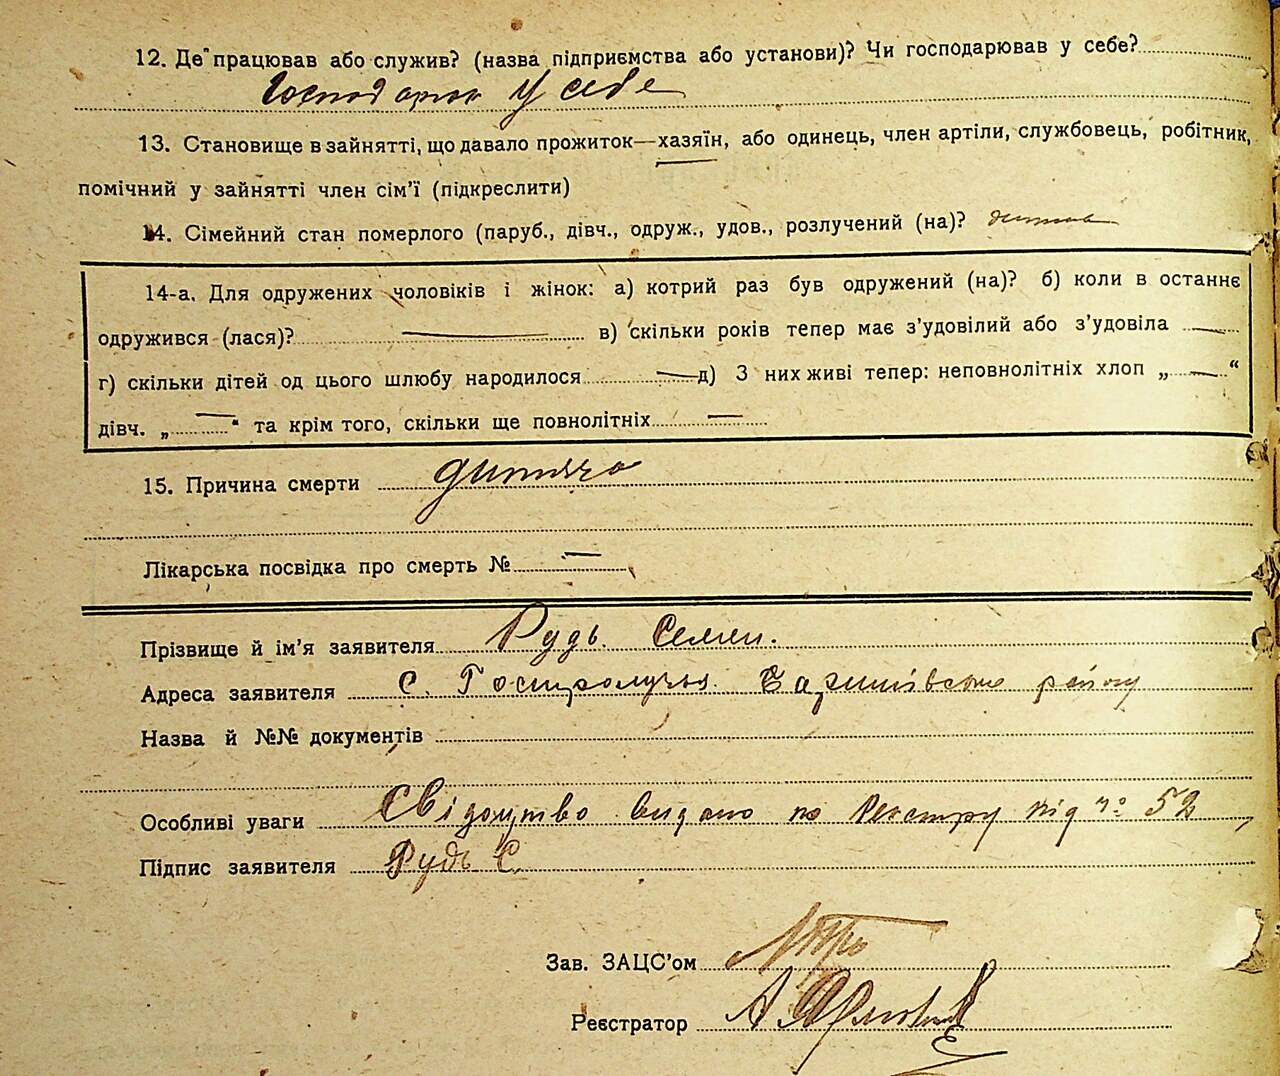 12. Де працював або служив? (назва підприємства або установи)? Чи господарював у себе?
Господарює У себе
13. Становище в зайнятті, що давало прожиток—хазяїн, або одинець, член артіли, службовець, робітник,
помічний у зайнятті член сім’ї (підкреслити)
14. Сімейний стан померлого (паруб., дівч., одруж., удов., розлучений (на)?
14-а. Для одружених чоловіків і жінок: а) котрий раз був одружений (на)? б) коли в останнє
одружився (лася)? — в) скільки років тепер має з’удовілий або з’удовіла —
г) скільки дітей од цього шлюбу народилося — д) З них живі тепер: неповнолітніх хлоп „—“
дівч. „—“ та крім того, скільки ще повнолітніх —
15. Причина смерти дитяча
Лікарська посвідка про смерть № —
Прізвище й ім’я заявителя Рудь Семен.
Адреса заявителя с. Гостролуччя Баришівського району
Назва й №№ документів
Особливі уваги Свідоцтво видано по Реєстру під № 52
Підпис заявителя Рудь С.
Зав. ЗАЦС’ом
Реєстратор А